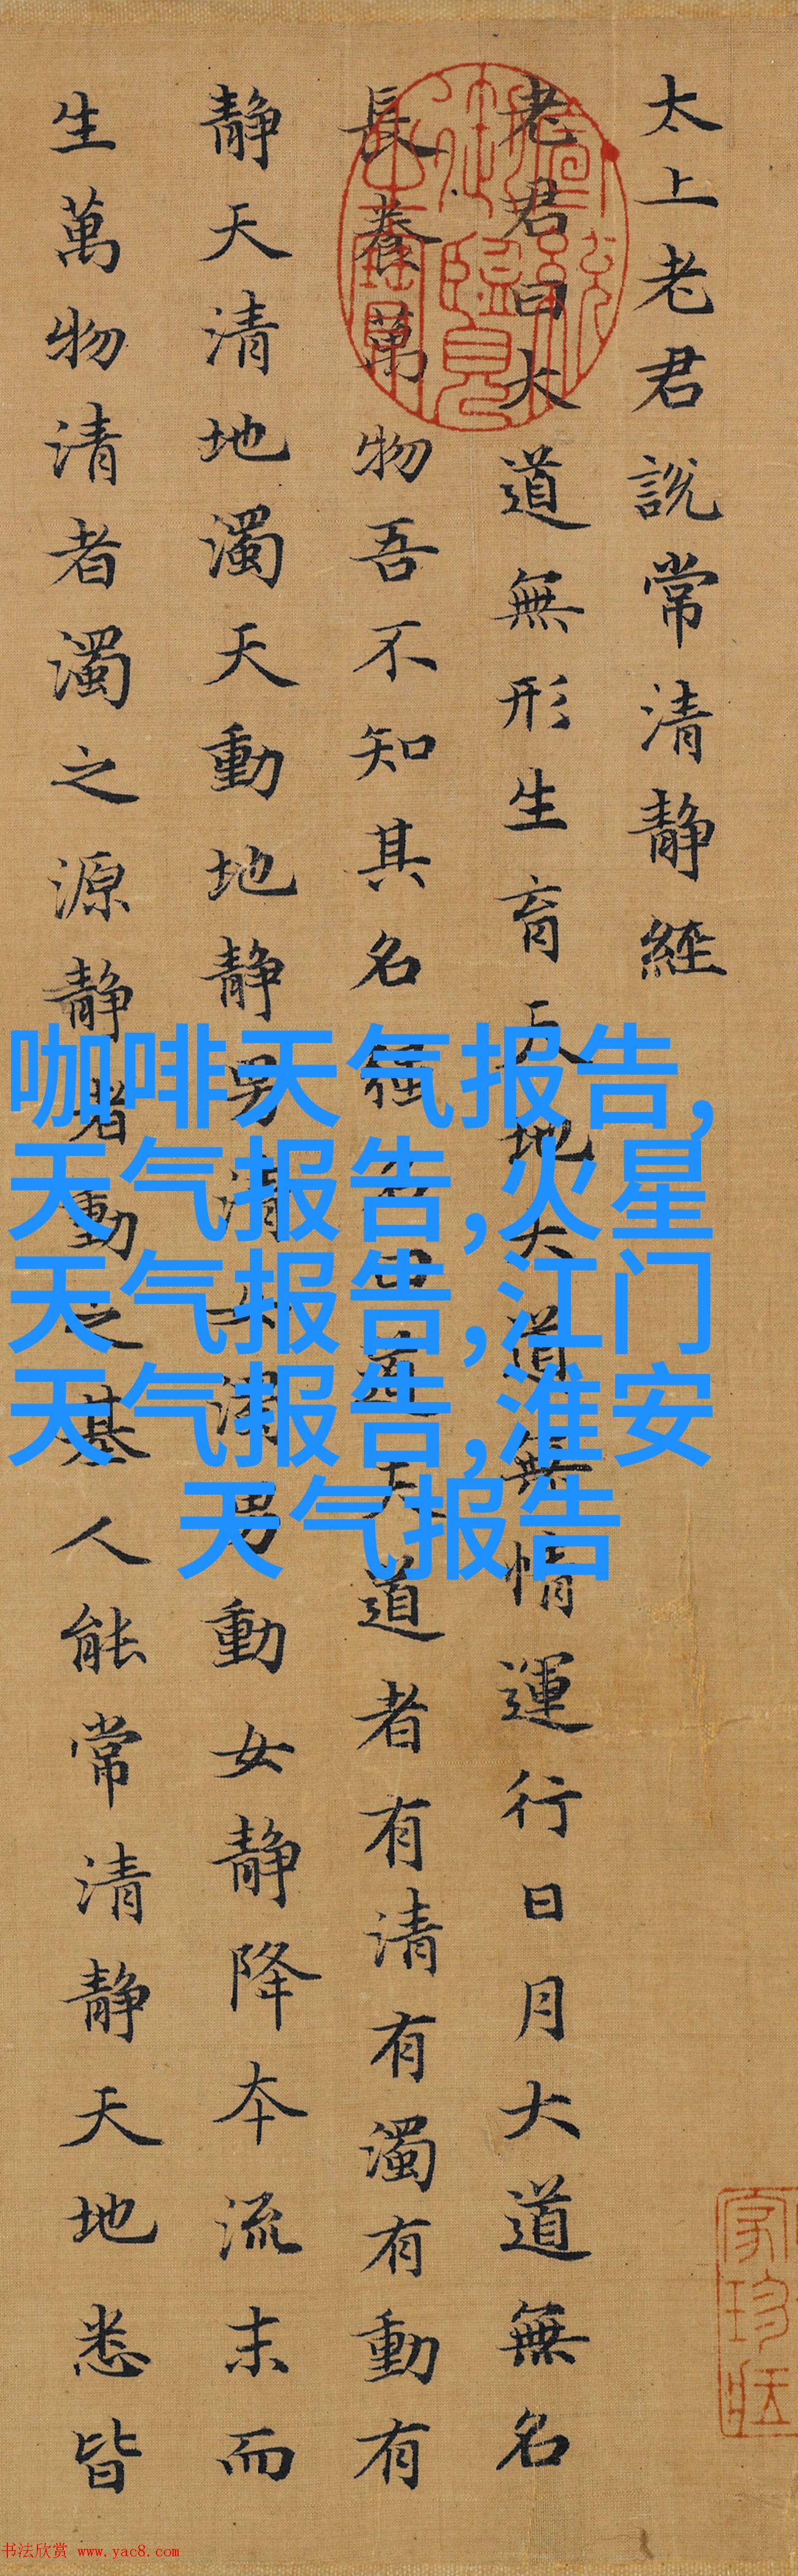 太上老君説常清静經
老君曰大道無形生育天地大道無情運行日月大道無名
長養萬物吾不知其名強名曰道夫道者有清有濁有動有
静天清地濁天動地静男清女濁男動女静降本流末而
生萬物清者濁之源静者動之基人能常清静天地悉皆
咖啡天气报告,
天气报告,火星
天气报告,江门
天气报告,淮安
天气报告
书法欣赏 www.yac8.com